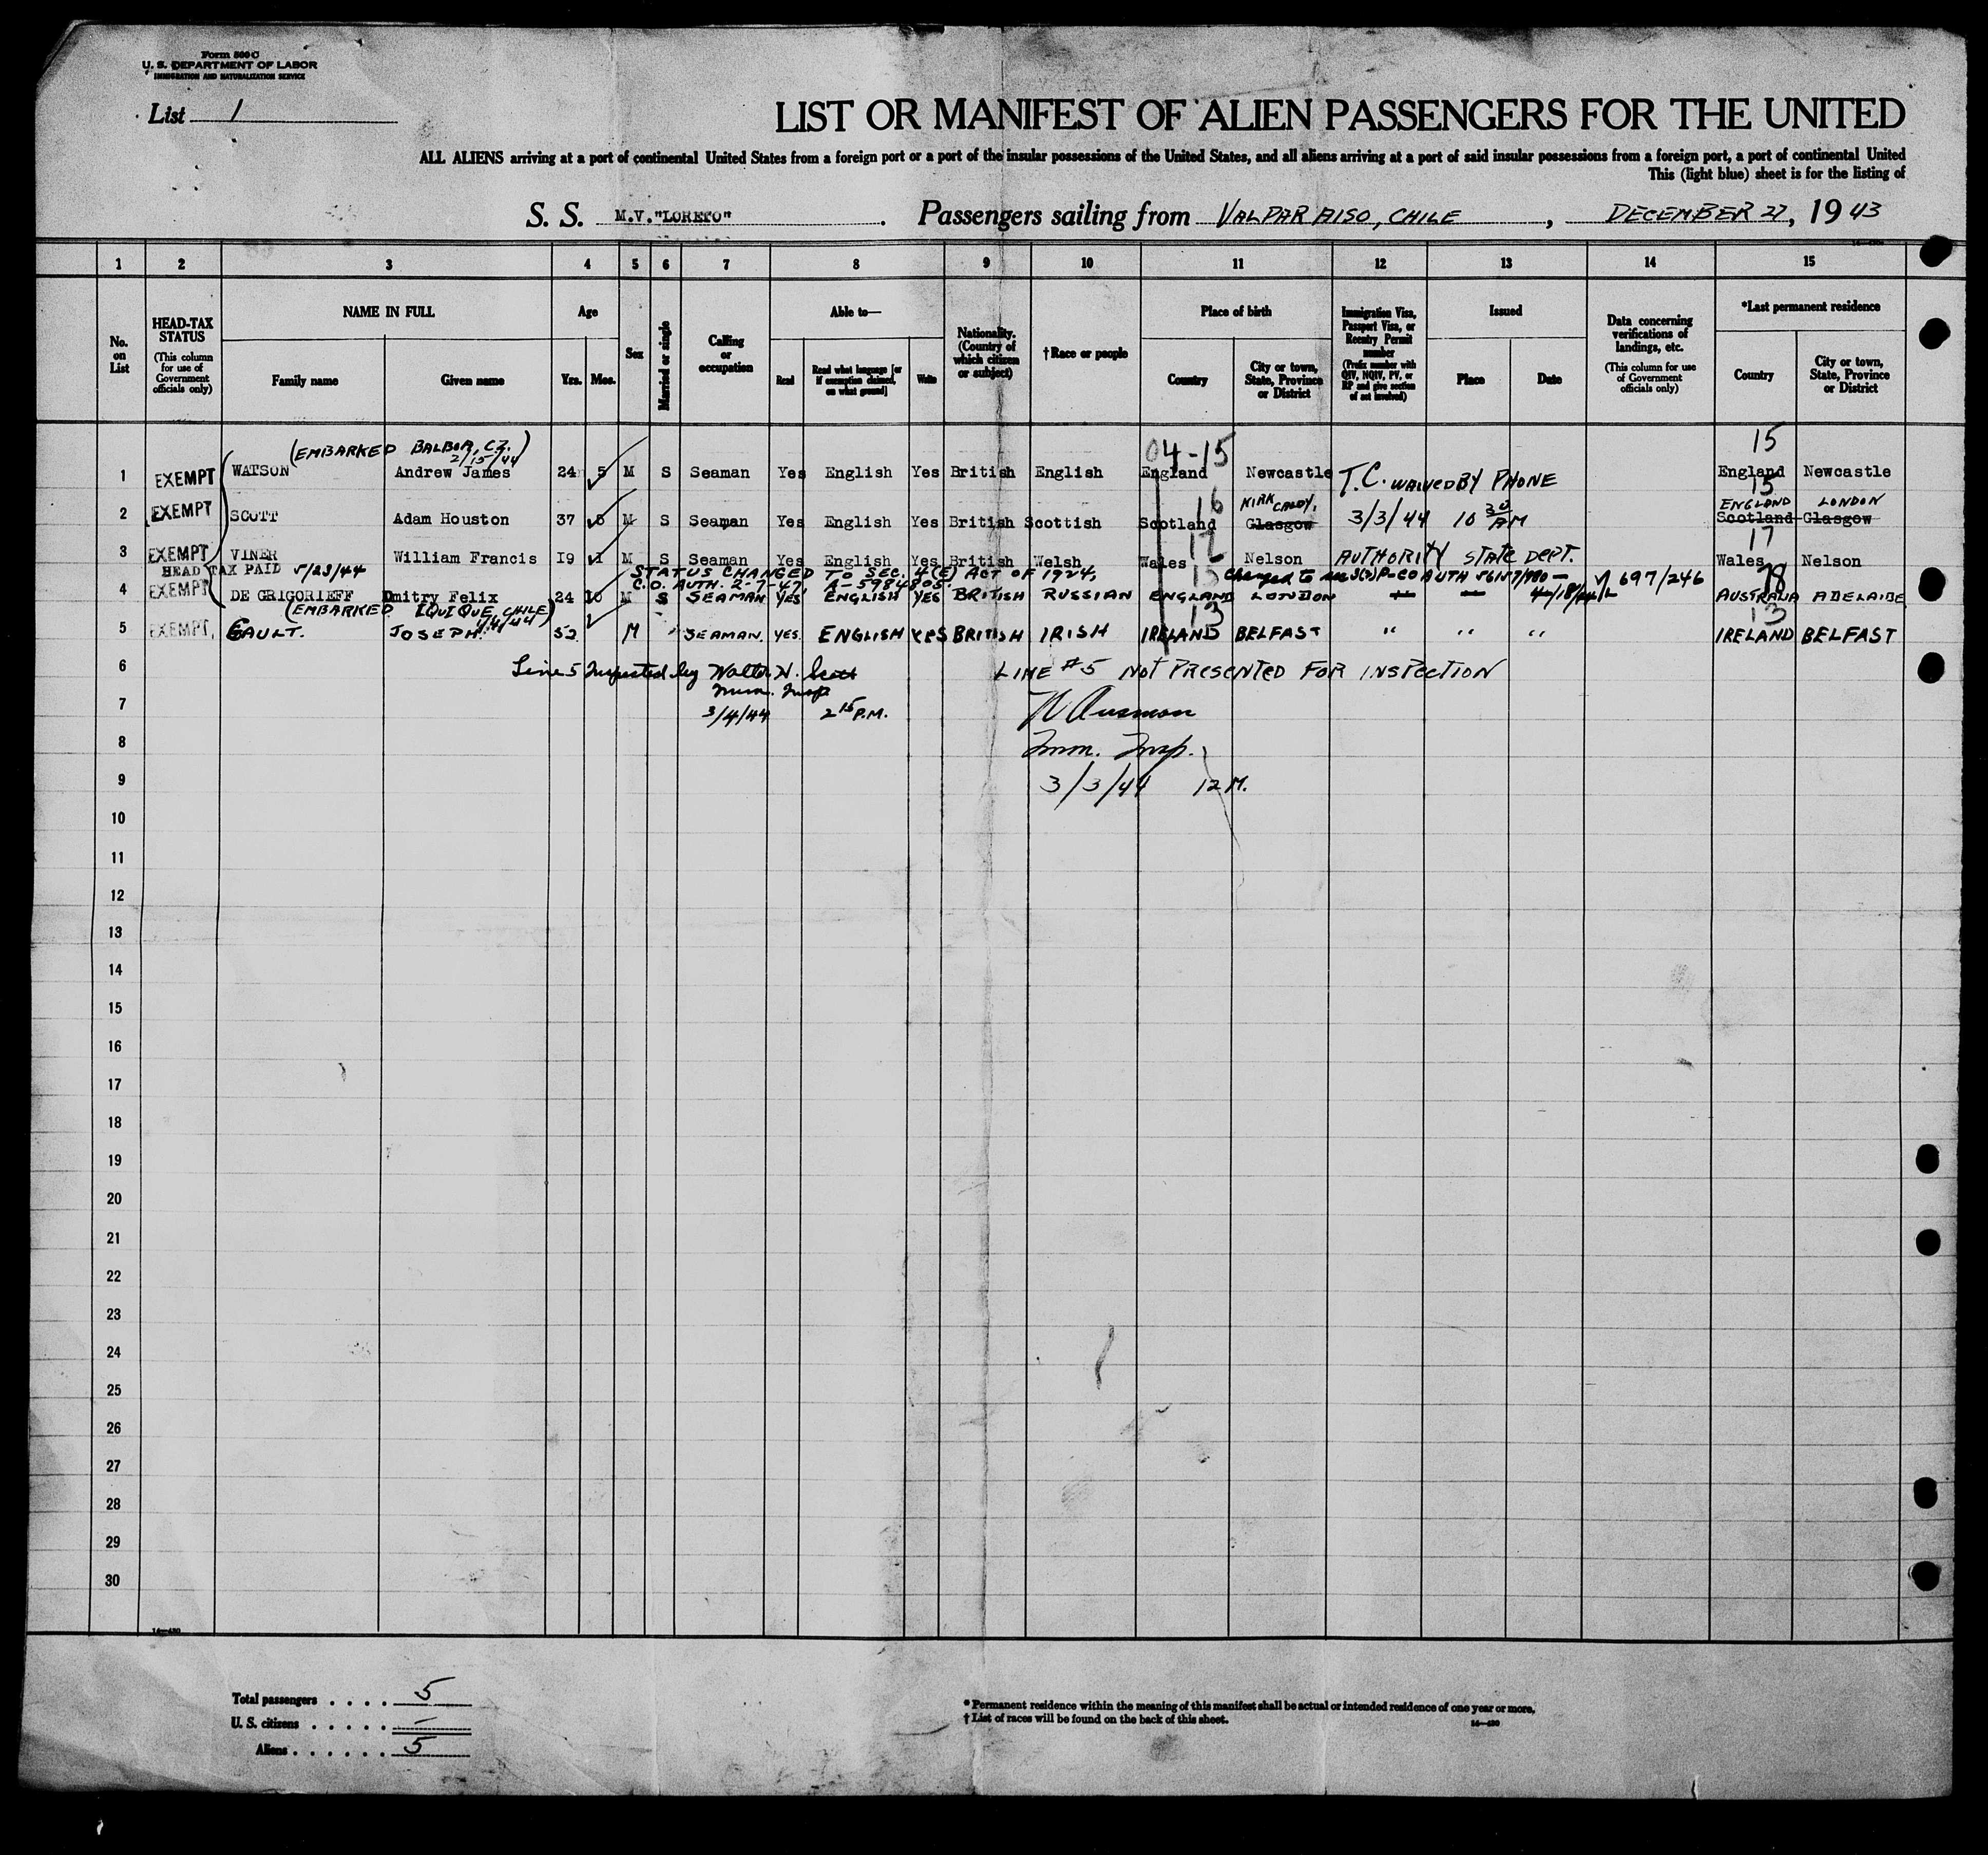 Form 500 C
U. S. DEPARTMENT OF LABOR
IMMIGRATION AND NATURALIZATION SERVICE
List 1
LIST OR MANIFEST OF ALIEN PASSENGERS FOR THE UNITED
ALL ALIENS arriving at a port of continental United States from a foreign port or a port of the insular possessions of the United States, and all aliens arriving at a port of said insular possessions from a foreign port, a port of continental United
This (light blue) sheet is for the listing of
S. S. M.V."LORETO". Passengers sailing from VALPARAISO, CHILE, DECEMBER 27, 1943
1 2 3 4 5 6 7 8 9 10 11 12 13 14 15
No. on List
HEAD-TAX STATUS (This column for use of Government officials only)
NAME IN FULL
Family name
Given name
Age
Yrs. Mos.
Sex
Married or single
Calling or occupation
Able to—
Read
Read what language [or if exemption claimed, on what ground]
Write
Nationality. (Country of which citizen or subject)
†Race or people
Place of birth
Country
City or town, State, Province or District
Immigration Visa, Passport Visa, or Reentry Permit number (Prefix number with QIV, NQIV, PV, or RP and give section of act involved)
Issued
Place
Date
Data concerning verifications of landings, etc. (This column for use of Government officials only)
*Last permanent residence
Country
City or town, State, Province or District
(EMBARKED BALBOA, CZ. 2/15/44)
04-15
15
1 EXEMPT WATSON Andrew James 24 5 M S Seaman Yes English Yes British English England Newcastle T.C. WAIVED BY PHONE England Newcastle
16 KIRKCALDY, 15 ENGLAND LONDON
2 EXEMPT SCOTT Adam Houston 37 5 M S Seaman Yes English Yes British Scottish Scotland Glasgow 3/3/44 10 30 AM Scotland Glasgow
17 17
3 EXEMPT VINER William Francis I9 1 M S Seaman Yes English Yes British Welsh Wales Nelson AUTHORITY STATE DEPT. Wales Nelson
HEAD TAX PAID 5/23/44 STATUS CHANGED TO SEC. 4(E) ACT OF 1924,
C.O. AUTH. 2-7-47, A-5984805. 15 Changed to sec 3(2) P-CO AUTH 56157/980— 4/18/44 697/246 78
4 EXEMPT DE GRIGORIEFF Dmitry Felix 24 10 M S SEAMAN YES ENGLISH YES BRITISH RUSSIAN ENGLAND LONDON AUSTRALIA ADELAIDE
(EMBARKED IQUIQUE, CHILE) 1/4/44 13 13
5 EXEMPT, GAULT. JOSEPH. 52 M SEAMAN. YES. ENGLISH YES BRITISH IRISH IRELAND BELFAST " " " IRELAND BELFAST
6 Line 5 Inspected by Walter H. Scott LINE #5 NOT PRESENTED FOR INSPECTION
Imm. Insp
7 3/4/44 2 15 P.M.
8 Imm. Insp.
9 3/3/44 12 M.
10
11
12
13
14
15
16
17
18
19
20
21
22
23
24
25
26
27
28
29
30
Total passengers . . . . 5
U. S. citizens . . . . . –
Aliens . . . . . . 5
* Permanent residence within the meaning of this manifest shall be actual or intended residence of one year or more.
† List of races will be found on the back of this sheet.